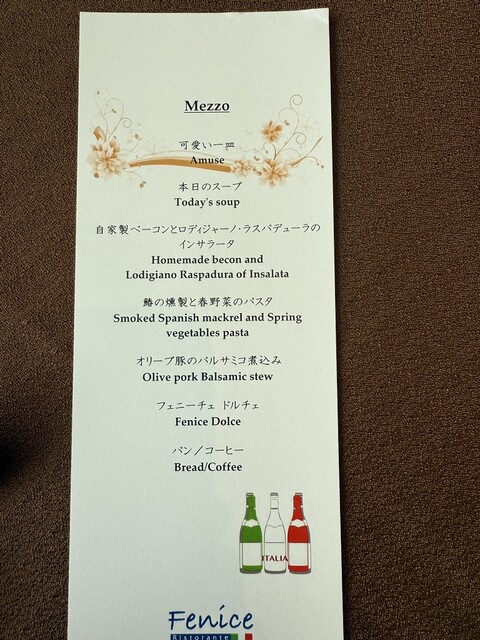 Mezzo
可愛い一皿
Amuse
本日のスープ
Today's soup
自家製ベーコンとロディジャーノ・ラスパデューラの
インサラータ
Homemade becon and
Lodigiano Raspadura of Insalata
鰆の燻製と春野菜のパスタ
Smoked Spanish mackrel and Spring
vegetables pasta
オリーブ豚のバルサミコ煮込み
Olive pork Balsamic stew
フェニーチェ ドルチェ
Fenice Dolce
パン／コーヒー
Bread/Coffee
ITALIA
Fenice
Ristorante